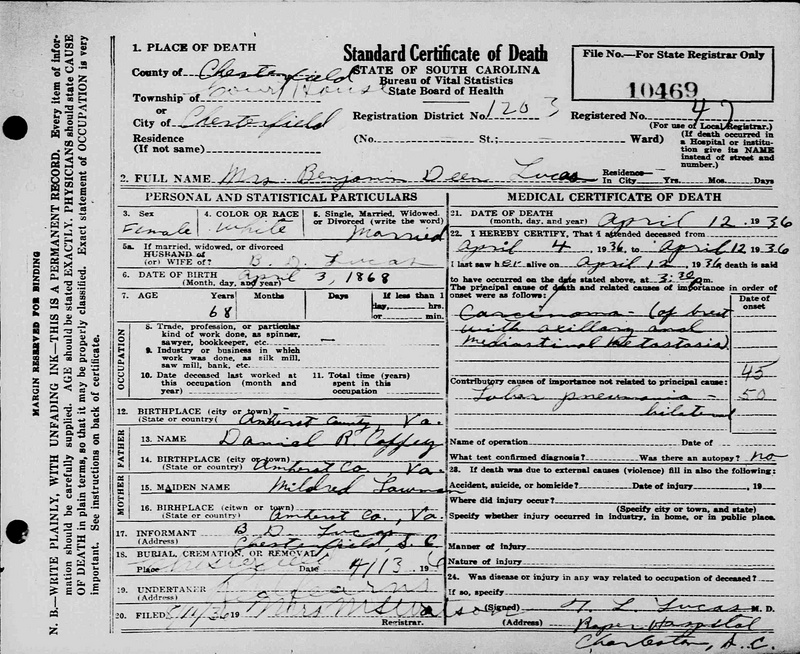 MARGIN RESERVED FOR BINDING
N. B.—WRITE PLAINLY, WITH UNFADING INK—THIS IS A PERMANENT RECORD. Every item of information should be carefully supplied. AGE should be stated EXACTLY. PHYSICIANS should state CAUSE OF DEATH in plain terms, so that it may be properly classified. Exact statement of OCCUPATION is very important. See instructions on back of certificate.
1. PLACE OF DEATH
County of Chesterfield
Township of Court House
or
City of Chesterfield
Residence
(If not same)
Standard Certificate of Death
STATE OF SOUTH CAROLINA
Bureau of Vital Statistics
State Board of Health
Registration District No. 1203
(No. St.; Ward)
File No.—For State Registrar Only
10469
Registered No. 47
(For use of Local Registrar.)
(If death occurred in
a Hospital or institu-
tion give its NAME
instead of street and
number.)
2. FULL NAME Mrs. Benjamin Deen Lucas
Residence—
In City Yrs. Mos. Days
PERSONAL AND STATISTICAL PARTICULARS
3. Sex
Female
4. COLOR OR RACE
White
5. Single, Married, Widowed,
or Divorced (write the word)
Married
5a. If married, widowed, or divorced
HUSBAND of
(or) WIFE of? B. D. Lucas
6. DATE OF BIRTH April 3, 1868
(Month, day, and year)
7. AGE Years Months Days If less than 1
day, hrs.
or min.
68
OCCUPATION
8. Trade, profession, or particular
kind of work done, as spinner,
sawyer, bookkeeper, etc. —
9. Industry or business in which
work was done, as silk mill,
saw mill, bank, etc.
10. Date deceased last worked at
this occupation (month and
year)
11. Total time (years)
spent in this
occupation
12. BIRTHPLACE (city or town)
(State or country) Amherst County Va.
FATHER
13. NAME Daniel R Coffey
14. BIRTHPLACE (city or town)
(State or country) Amherst Co., Va.
MOTHER
15. MAIDEN NAME Mildred
16. BIRTHPLACE (city or town)
(State or country) Amherst Co., Va.
17. INFORMANT B. D. Lucas
(Address) Chesterfield, S. C
18. BURIAL, CREMATION, OR REMOVAL
Place Chesterfield Date 4/13 1936
19. UNDERTAKER
20. FILED 19 Mrs
Registrar.
MEDICAL CERTIFICATE OF DEATH
21. DATE OF DEATH
(month, day, and year) April 12 1936
22. I HEREBY CERTIFY, That I attended deceased from
April 4 1936, to April 12 1936
I last saw her alive on April 12, 1936 death is said
to have occurred on the date stated above, at 3:30 pm.
The principal cause of death and related causes of importance in order of
onset were as follows:
Date of
onset
Carcinoma - (of breast
with axillary and
mediastinal metastasis)
45
50
Contributory causes of importance not related to principal cause:
Lobar pneumonia -
bilateral
Name of operation Date of
What test confirmed diagnosis? Was there an autopsy? no
23. If death was due to external causes (violence) fill in also the following:
Accident, suicide, or homicide? Date of injury 19
Where did injury occur?
(Specify city or town, and state)
Specify whether injury occurred in industry, in home, or in public place.
Manner of injury
Nature of injury
24. Was disease or injury in any way related to occupation of deceased?
If so, specify
(Signed) Lucas M. D.
(Address) Roper Hospital
Charleston, S. C.